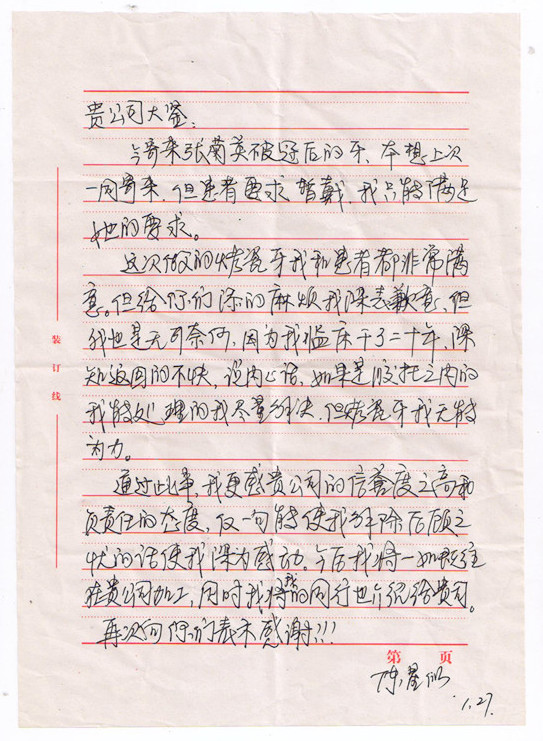 贵公司大鉴:
今寄来张菊英破冠后的牙、本想上次
一同寄来,但患者要求暂戴,我只能满足
她的要求。
这次做的烤瓷牙我和患者都非常满
意。但给你们添的麻烦我深表歉意,但
我也是无可奈何,因为我临床干了二十年,深
知返回的不快,说内心话,如果是胶托之内的
我能处理的我尽量解决,但烤瓷牙我无能
为力。
通过此事,我更感贵公司的信誉度之高和
负责任的态度,仅一句能使我解除后顾之
忧的话使我深为感动。今后我将一如既往
在贵公司加工,同时我将我的同行也介绍给贵司。
再次向你们表示感谢!!!
装订线
第 页
陈
1.27.